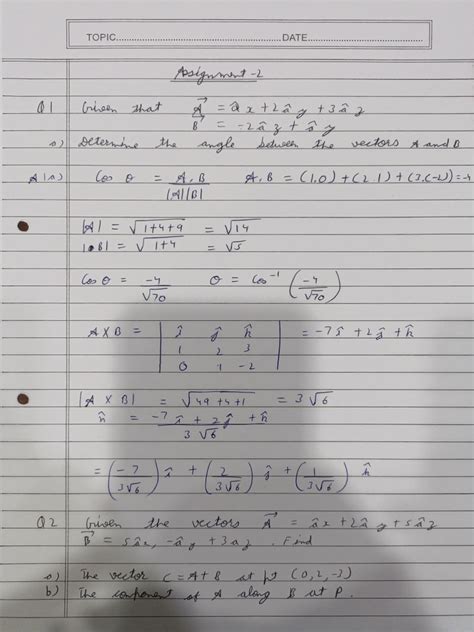 TOPIC................................DATE................................
Assignment-2
Q1 Given that A⃗ = âx + 2ây + 3âz
B⃗ = -2âz + ây
a) Determine the angle between the vectors A and B
A1(a) Cos θ = A.B / |A||B| A.B = (1.0) + (2.1) + (3.(-2)) = -4
|A| = √(1+4+9) = √14
|B| = √(1+4) = √5
Cos θ = -4/√70 θ = Cos⁻¹(-4/√70)
A X B = | î ĵ k̂ | = -7î + 2ĵ + k̂
1 2 3
0 1 -2
|A X B| = √(49+4+1) = 3√6
n̂ = (-7î + 2ĵ + k̂) / 3√6
= (-7/3√6) î + (2/3√6) ĵ + (1/3√6) k̂
Q2 Given the vectors A⃗ = âx + 2ây + 5âz
B⃗ = 5âx, -ây + 3az . Find
a) The vector C = A + B at pt (0, 2, -3)
b) The component of A along B at P.